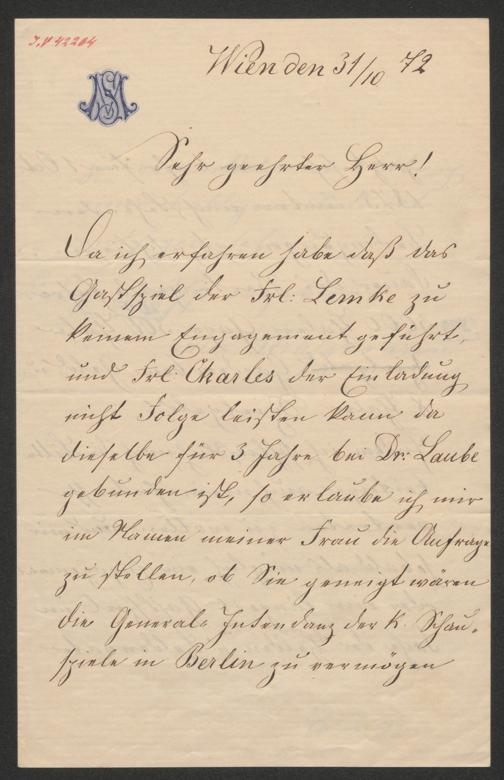 J.N 42204
Wien den 31/10 72
Sehr geehrter Herr!
Da ich erfahren habe daß das
Gastspiel der Frl: Lemke zu
keinem Engagement geführt,
und Frl: Charles der Einladung
nicht Folge leisten kann da
dieselbe für 3 Jahre bei Dr: Laube
gebunden ist, so erlaube ich mir
im Namen meiner Frau die Anfrage
zu stellen, ob Sie geneigt wären
die General-Intendanz der K. Schau-
spiele in Berlin zu vermögen